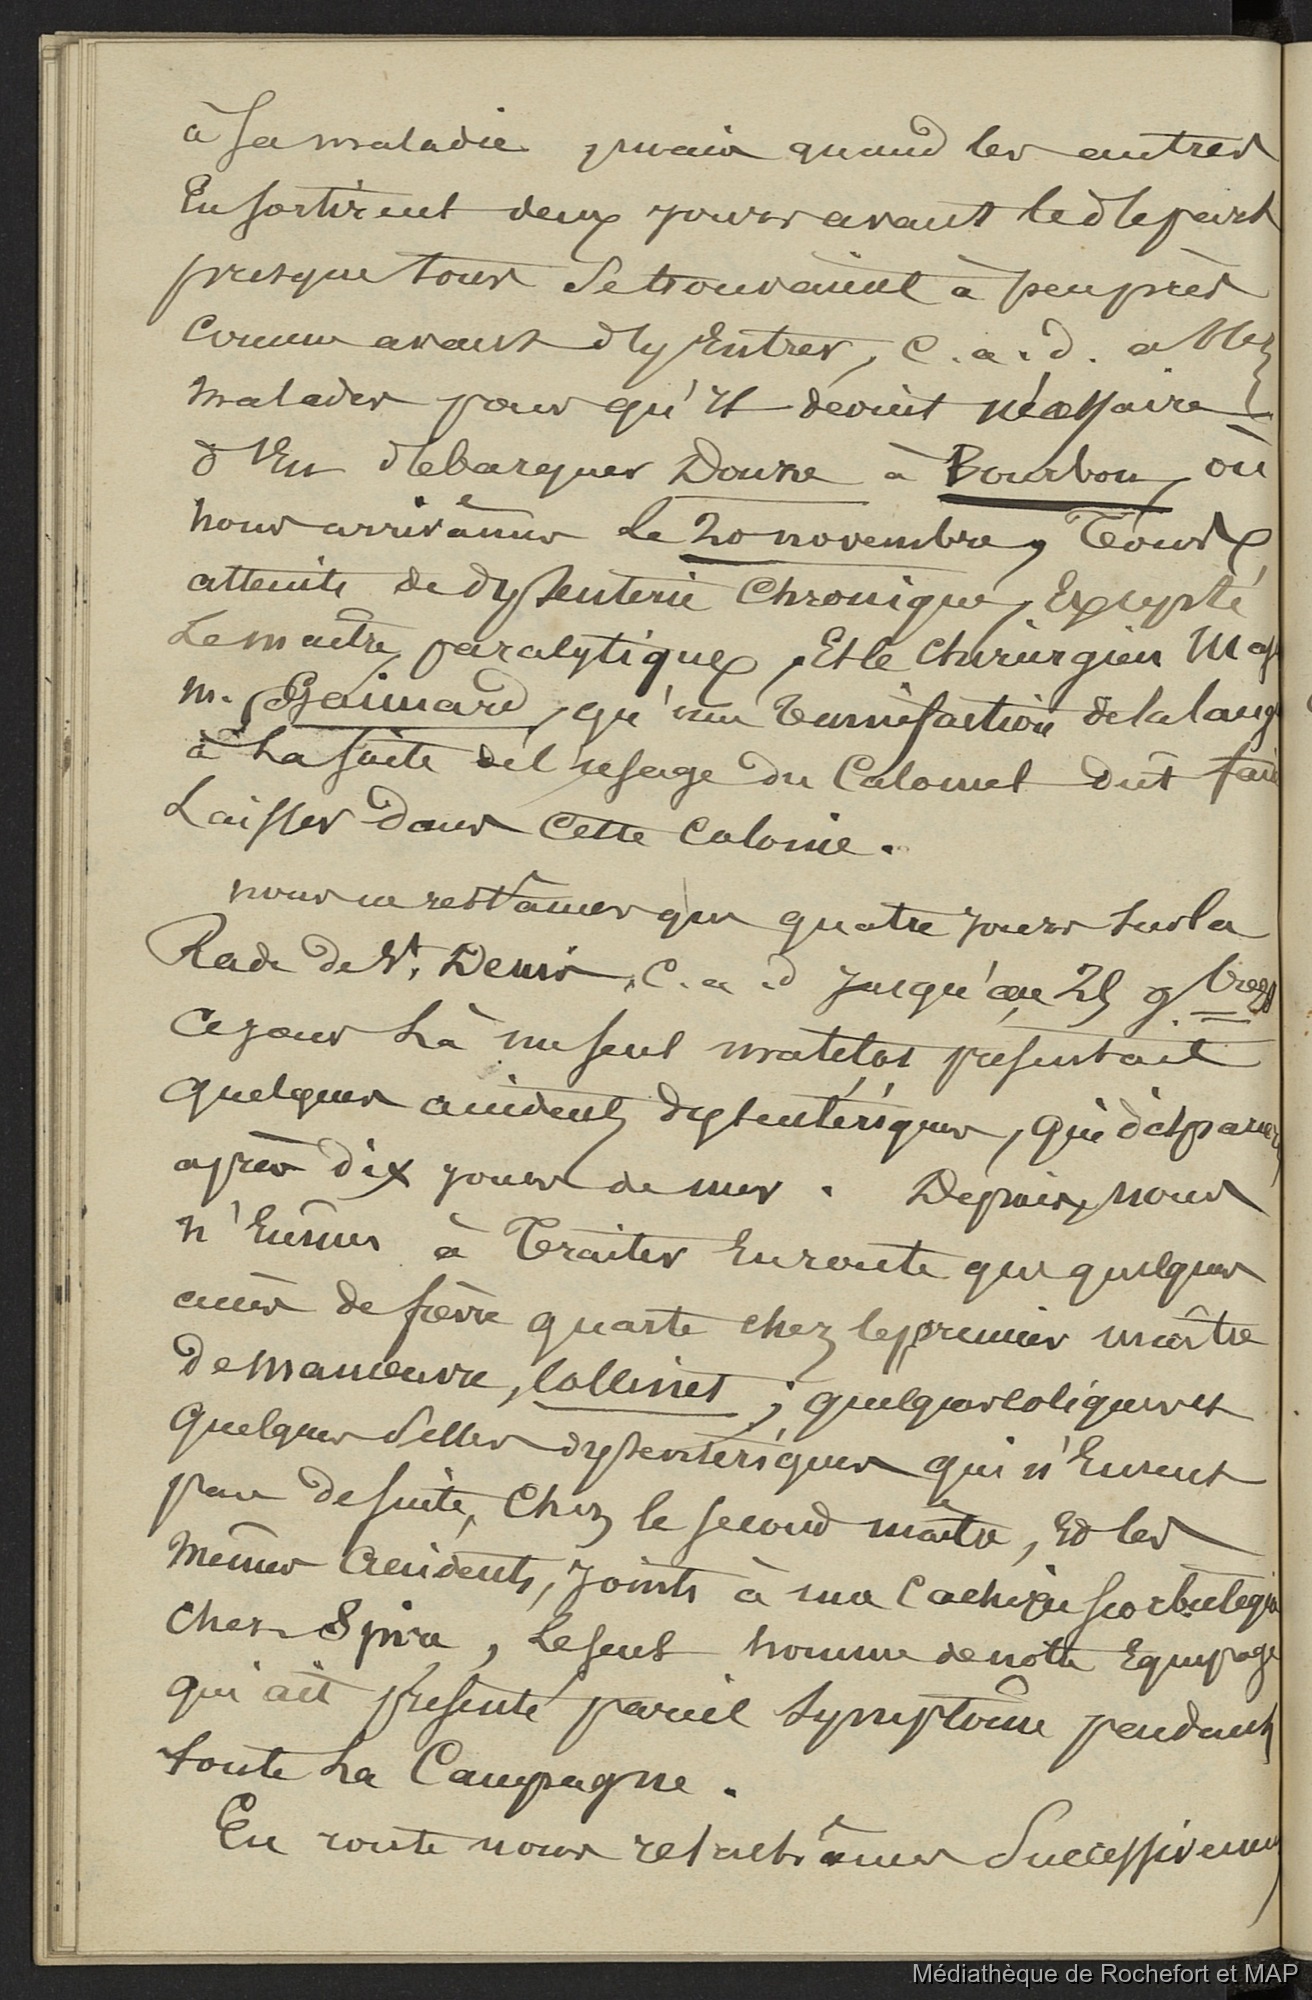 à sa maladie, mais quand les autres
En sortirent deux jours avant le départ
presque tous se trouvaient à peu près
comme avant d'y Entrer, c.a.d. assez
malades pour qu'il devint nécessaire
d'En débarquer Douze à Bourbon, où
nous arrivâmes le 20 novembre, Tous
atteints de dysenterie Chronique, Excepté
Le maître paralytique, Et le chirurgien Maj
m. Gaimard, qu'une tuméfaction de la lang
à La suite de l'usage du Calomel dut faire
Laisser dans Cette Colonie.
nous ne restâmes que quatre jours sur la
Rade de St. Denis, C.a.d jusqu'au 9bre
Ce jour Là un seul matelot présentait
quelques accidents dysentériques, qui disparur
après dix jours de mer. Depuis, nous
n'Eûmes à Traiter En route que quelques
accès de fièvre quarte chez le premier maître
De manœuvre, Collinet ; quelques coliques et
quelques selles dysentériques qui n'Eurent
pas de suite, Chez le second maître, Et les
mêmes accidents, joints à une Cachexie scorbutique
chez Spira, Le seul homme de notre Equipage
qui ait présenté pareil symptôme pendant
toute La Campagne.
En route nous relachâmes Successivement
Médiathèque de Rochefort et MAP